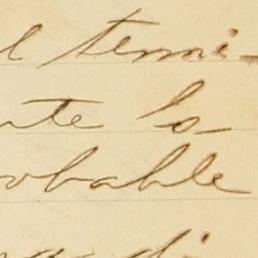 l termi-
nte lo-
obable